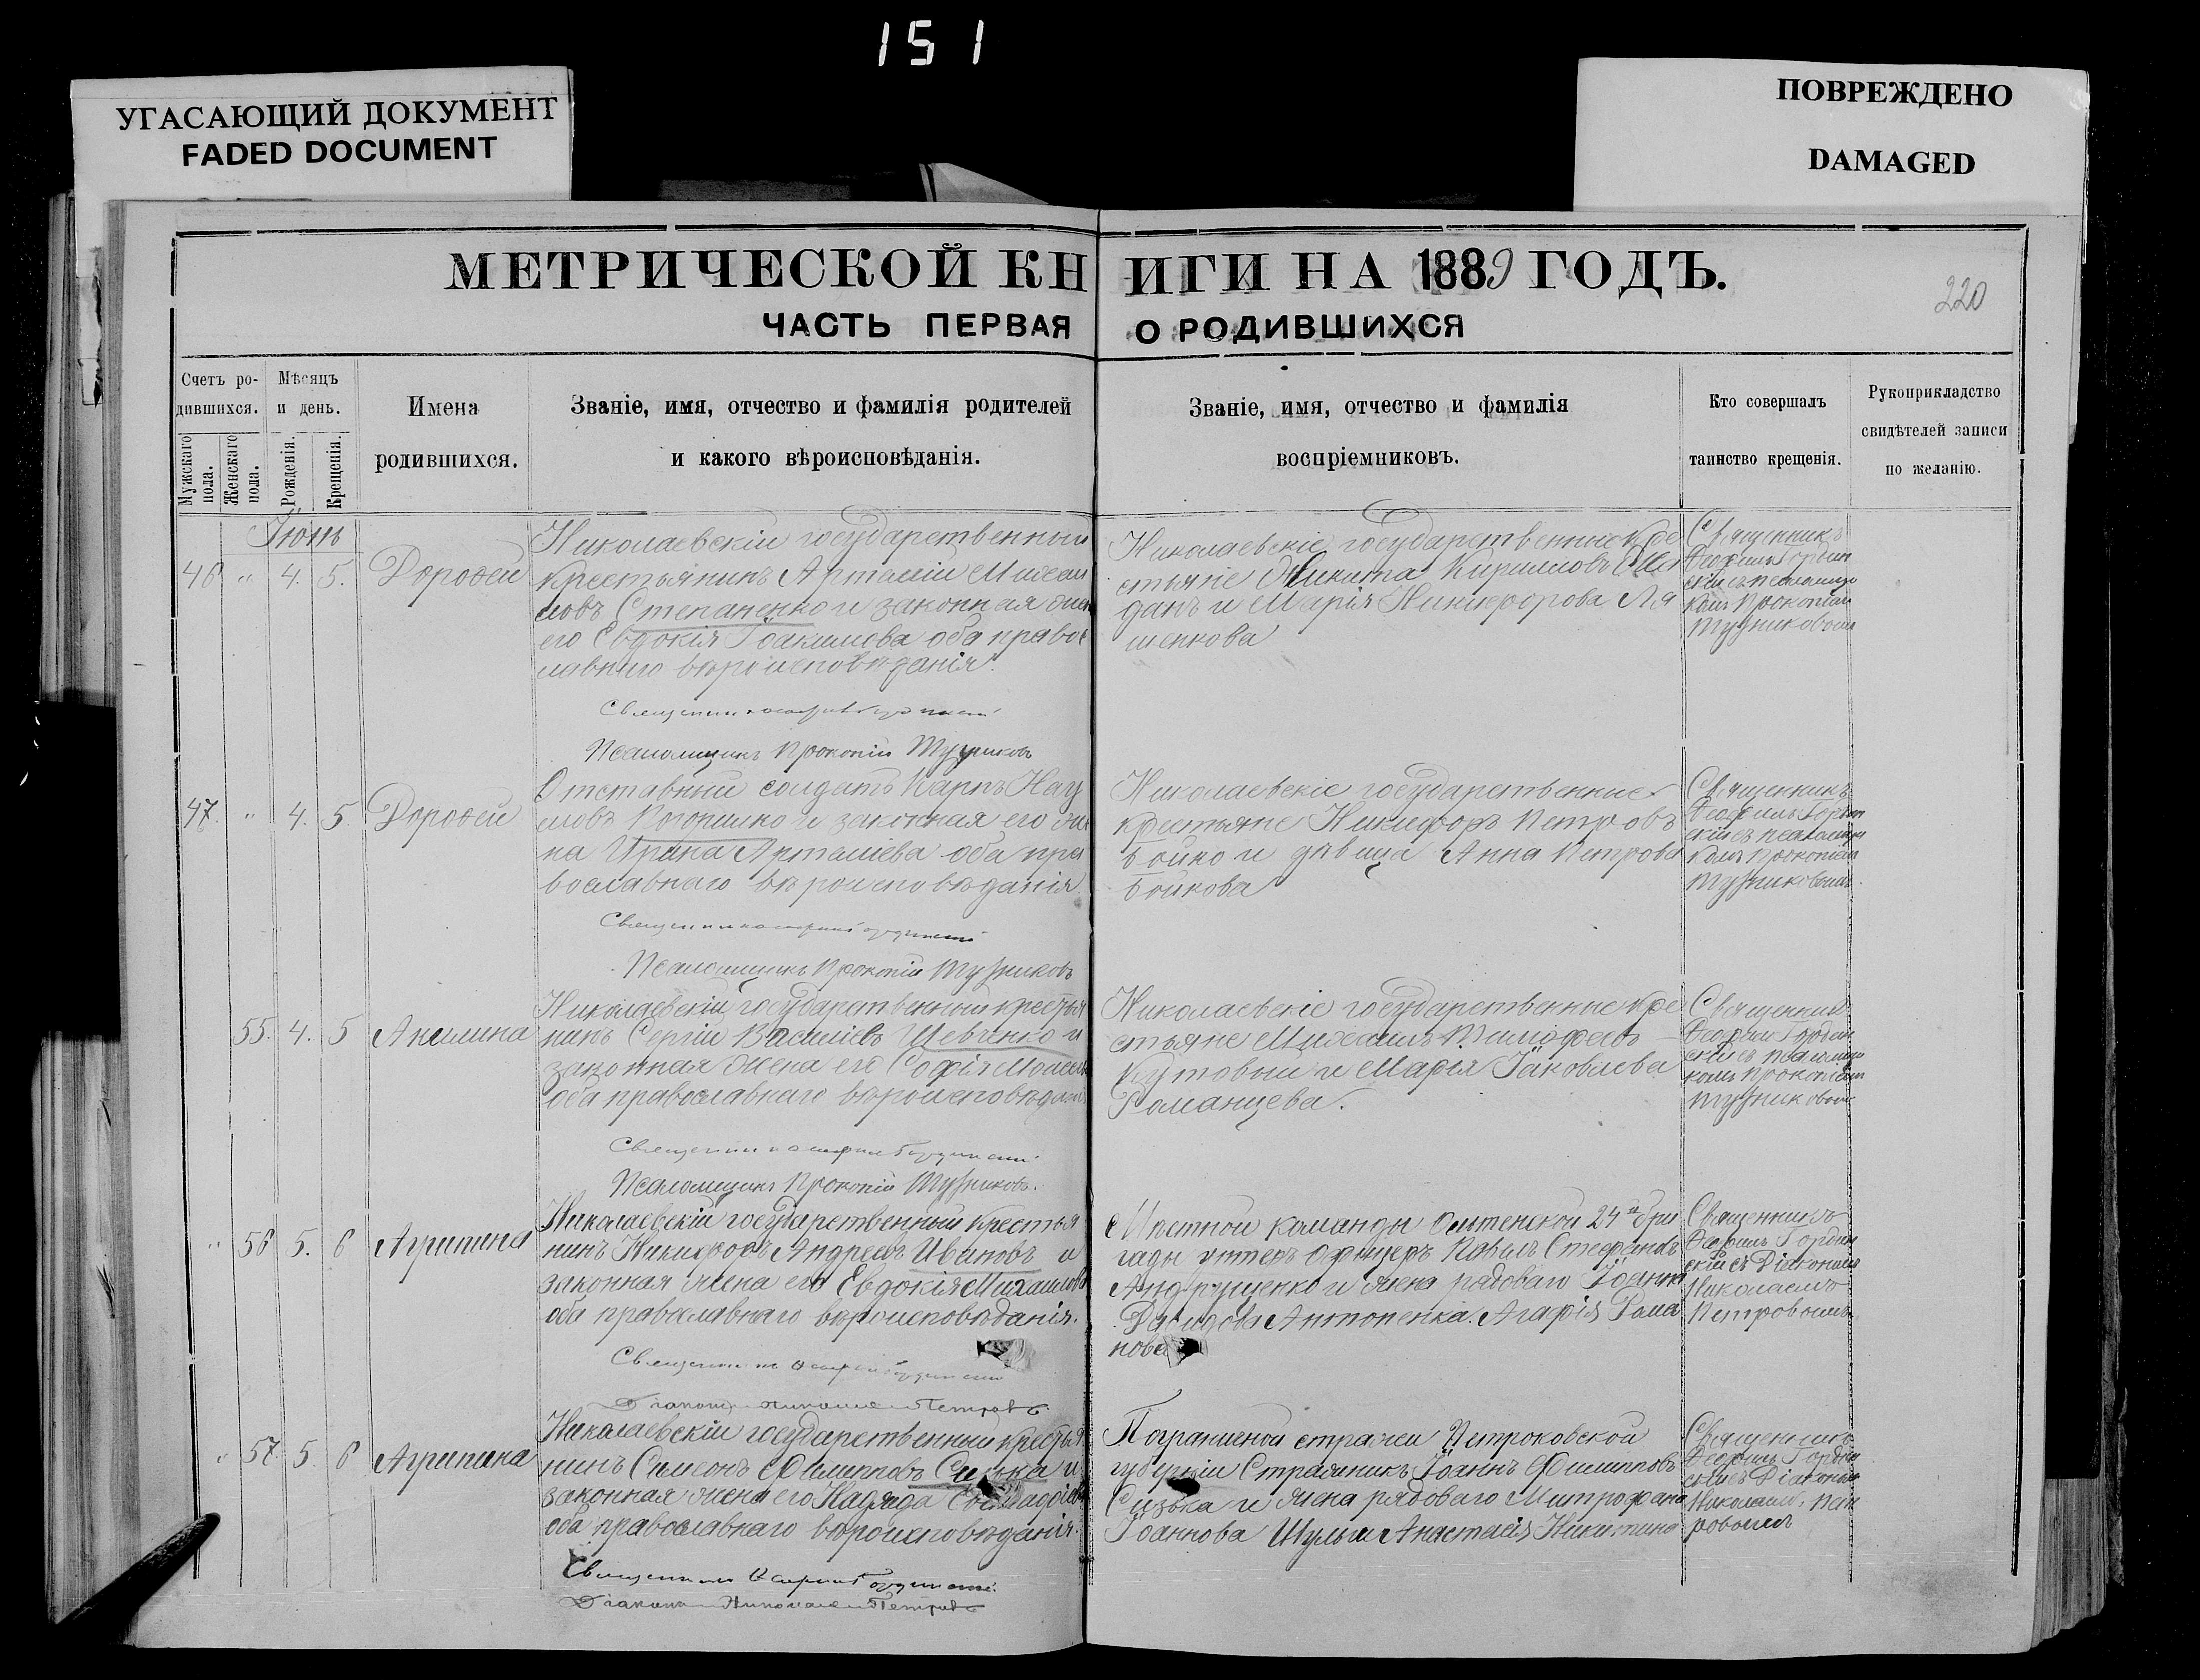 151
УГАСАЮЩИЙ ДОКУМЕНТ
FADED DOCUMENT
ПОВРЕЖДЕНО
DAMAGED
МЕТРИЧЕСКОЙ КНИГИ НА 1889 ГОДЪ.
220
ЧАСТЬ ПЕРВАЯ О РОДИВШИХСЯ
Счетъ ро-
дившихся.
Мужскаго пола.
Женскаго пола.
Мѣсяцъ
и день.
Рожденія.
Крещенія.
Имена
родившихся.
Званіе, имя, отчество и фамилія родителей
и какого вѣроисповѣданія.
Званіе, имя, отчество и фамилія
воспріемниковъ.
Кто совершалъ
таинство крещенія.
Рукоприкладство
свидѣтелей записи
по желанію.
Іюнь
46 " 4. 5. Дорофей
Николаевскій государственный
крестьянинъ Арталій Михаи
ловъ Степаненко и законная жен
его Евдокія Іоакимова оба правос
лавнаго вѣроисповѣданія.
Псаломщикъ Прокопій
Николаевскіе государственные кре
стьяне Никита Кириловъ
данъ и Марія Никифорова Ля
шенкова
Священникъ
47. " 4. 5 Дорофей
Отставный солдатъ Карпъ Нау
мовъ Погорилко и законная его же
на Ирина Арталіева оба пра
вославнаго вѣроисповѣданія
Псаломщикъ Прокопій
Николаевскіе государственные
крестьяне Никифоръ Петровъ
Бойко и дѣвица Анна Петрова
Бойкова
Священникъ
55. 4. 5 Акилина
Николаевскій государственный крестья
нинъ Сергій Василіевъ Шевченко и
законная жена его Софія Моисеев
оба православнаго вѣроисповѣдані
Псаломщикъ Прокопій
Николаевскіе государственные кре
стьяне Михаилъ Тимофеевъ
Кутовый и Марія Іаковлева
Романцева.
Священникъ
" 56 5. 6 Агрипина
Николаевскій государственный крестья
нинъ Никифоръ Андреевъ Ивановъ и
законная жена его Евдокія Михаилова
оба православнаго вѣроисповѣданія.
Діаконъ Николай Петровъ
Мѣстной команды 24й бри
гады унтеръ офицеръ Павелъ Стефановъ
Андрущенко и жена рядоваго Іоанна
Давидова Антоненка Агафія Рома
нова
Священникъ
скій съ Діакономъ
Николаемъ
Петровымъ
" 57. 5. 6 Агрипина
Николаевскій государственный крестья
нинъ Симеонъ Филипповъ Сизька и
законная жена его Надежда
оба православнаго вѣроисповѣданія.
Діаконъ Николай Петровъ
Пограничной стражи Петроковской
губерніи Стражникъ Іоаннъ Филипповъ
Сизька и жена рядоваго Митрофана
Іоаннова Шульги Анастасія Никитина
Священникъ
скій съ Діакономъ
Николаемъ Пет
ровымъ